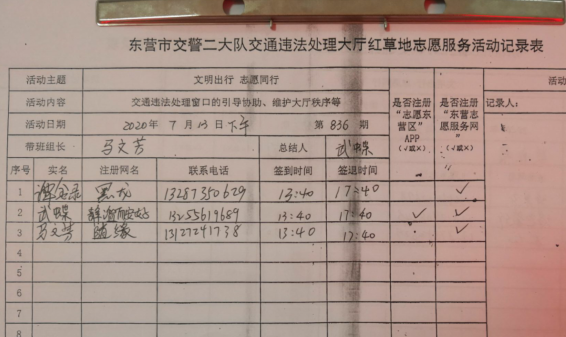 东营市交警二大队交通违法处理大厅红草地志愿服务活动记录表
活动主题 文明出行 志愿同行 活动
活动内容 交通违法处理窗口的引导协助、维护大厅秩序等 是否注册“志愿东营区”APP（√或×） 是否注册“东营志愿服务网”（√或×） 记录人：
活动日期 2020年 7月13日下午 第 836 期
带班组长 马文芳 总结人 武蝶
序号 实名 注册网名 联系电话 签到时间 签退时间
1 黑龙 13287350629 13:40 17:40 √
2 武蝶 13255619689 13:40 17:40 √ √
3 马文芳 随缘 13127241738 13:40 17:40 √
4
5
6
7
8